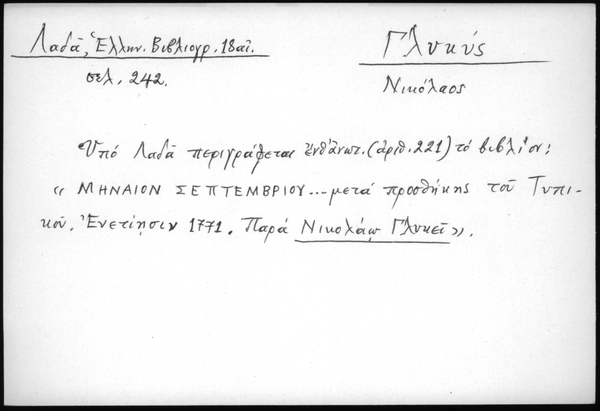 Λαδᾶ, Ἑλλην. Βιβλιογρ. 18 αἰ.
σελ. 242.
Γλυκύς
Νικόλαος
Ὑπό Λαδᾶ περιγράφεται ἐνθάνωτ. (ἀριθ. 221) τό βιβλίον:
« ΜΗΝΑΙΟΝ ΣΕΠΤΕΜΒΡΙΟΥ... μετά προσθήκης τοῦ Τυπι-
κοῦ. Ἐνετίησιν 1771. Παρά Νικολάῳ Γλυκεῖ».